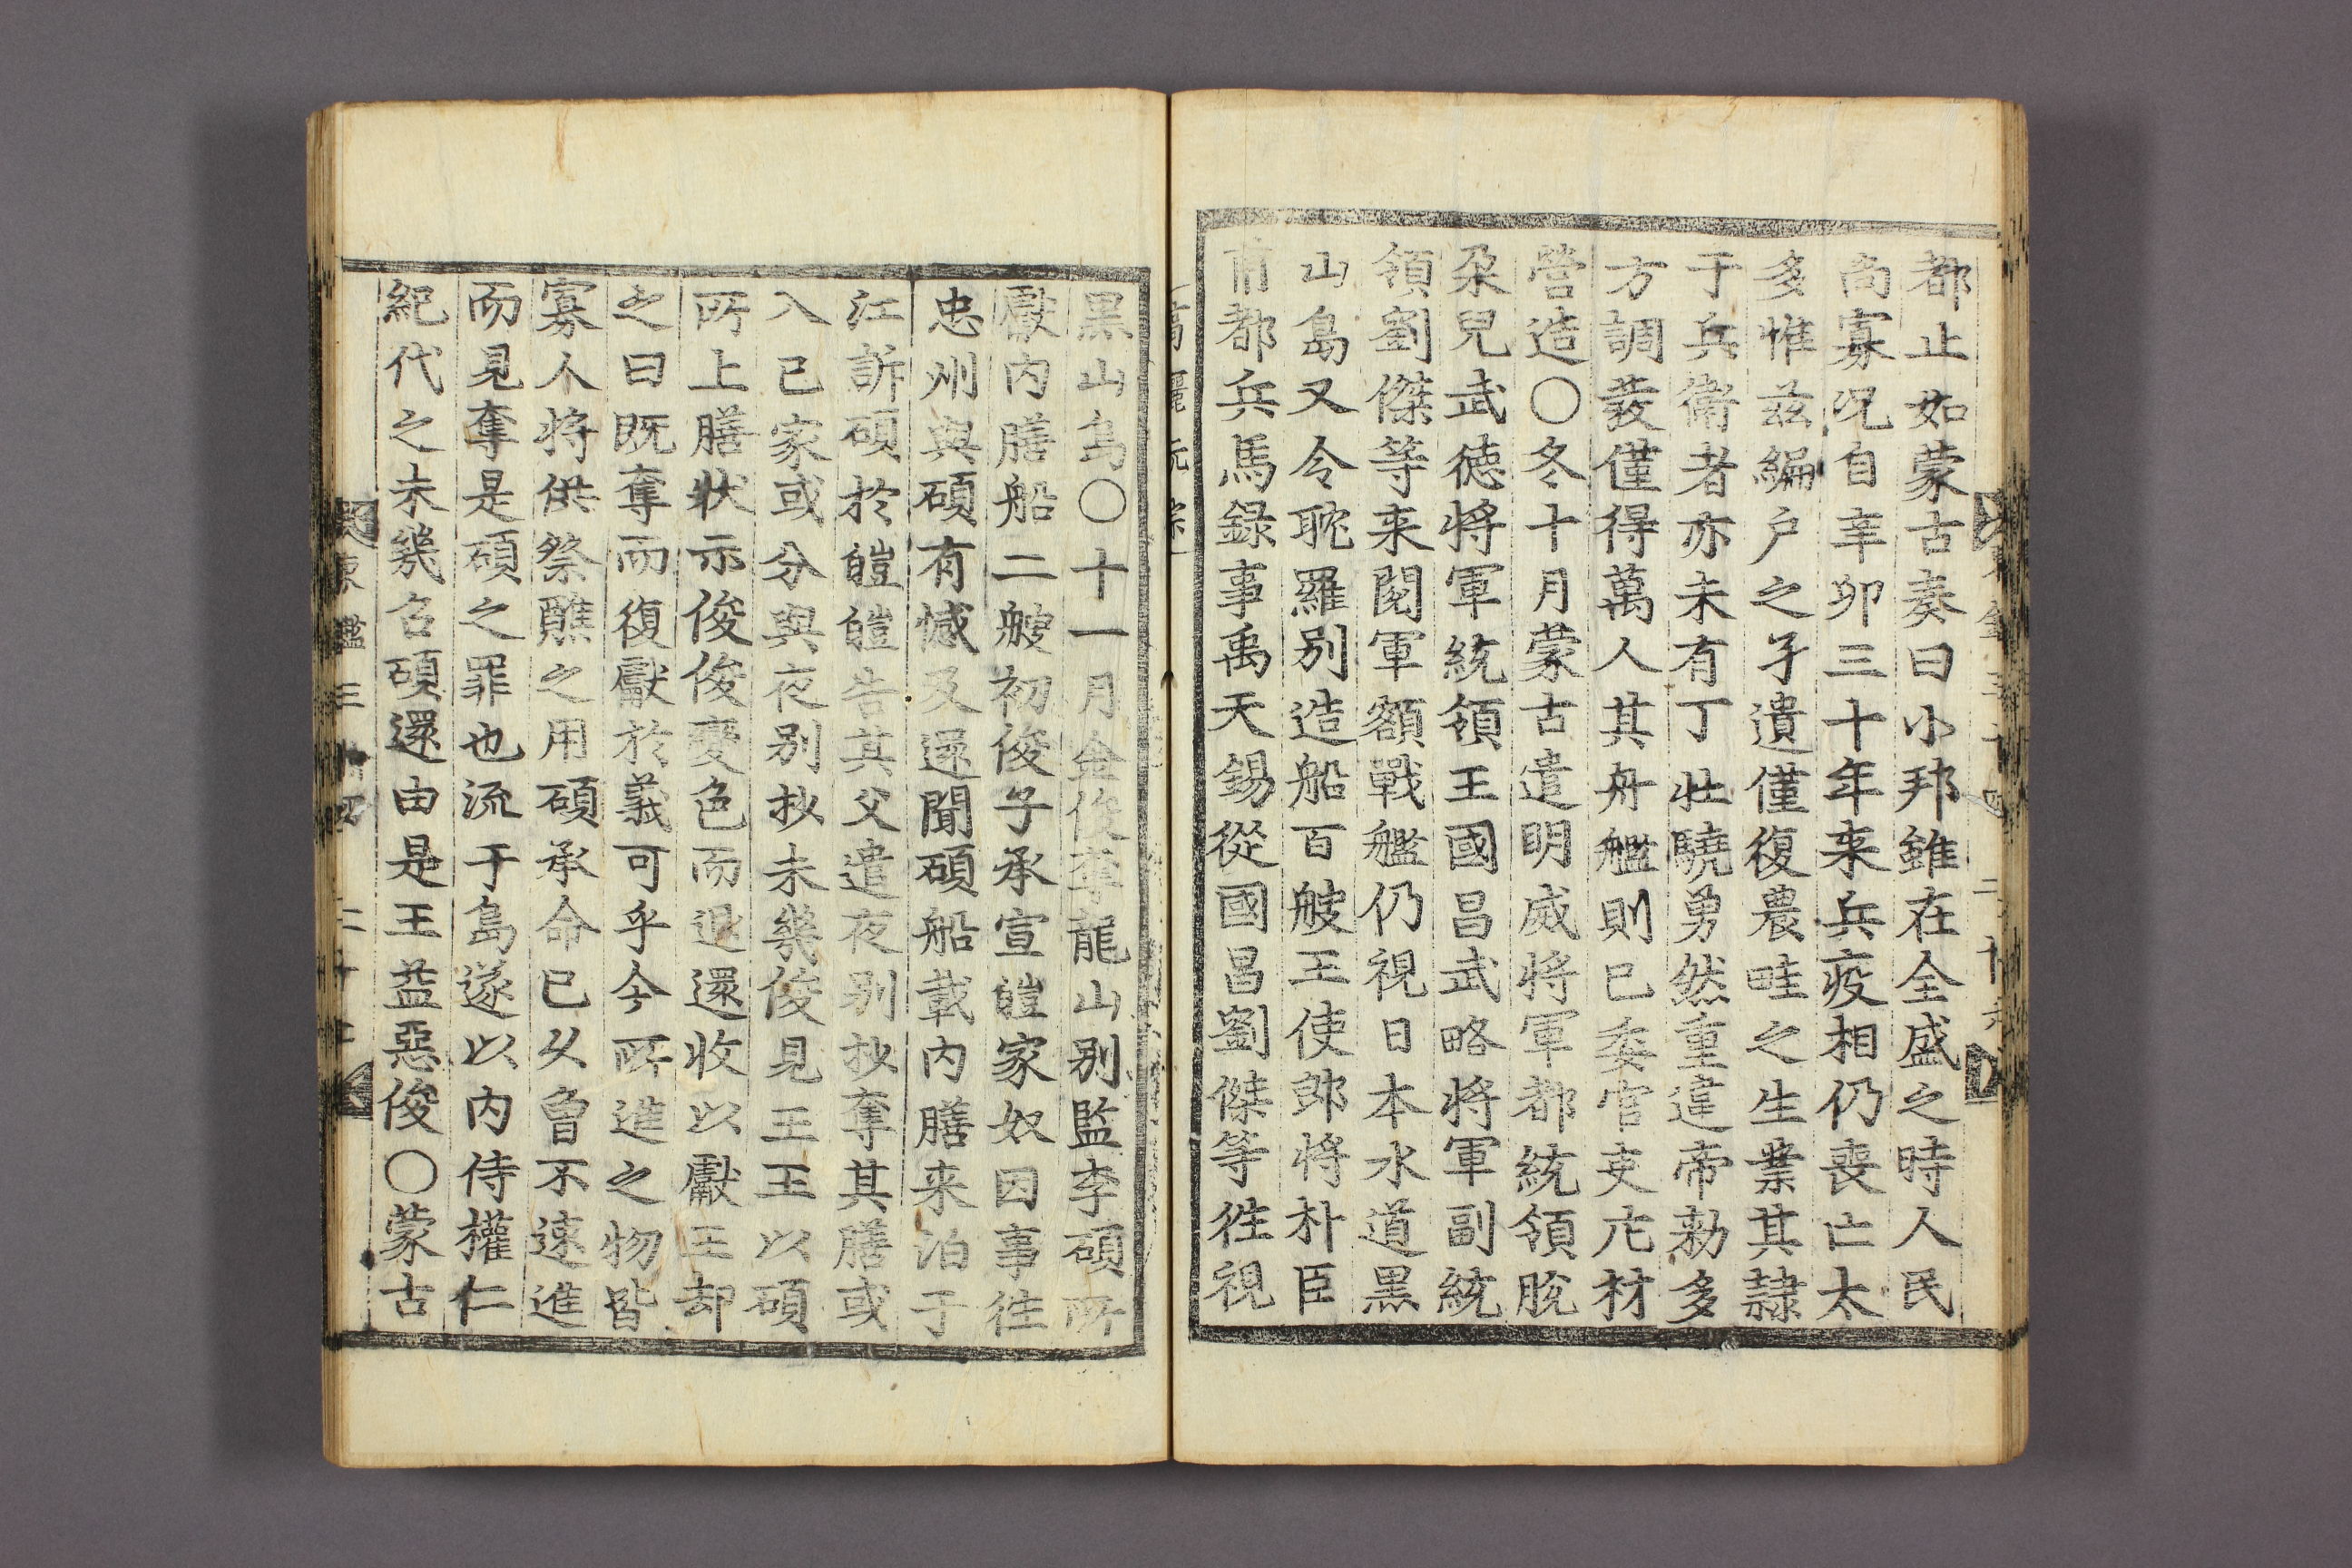 都止如蒙古奏曰小邦雖在全盛之時人民
尚寡况自辛卯三十年来兵疫相仍喪亡太
多惟茲編户之孑遺僅復農畦之生業其隷
于兵衛者亦未有丁壮驍勇然重違帝勑多
方調發僅得萬人其舟艦則已委官吏庀材
營造〇冬十月蒙古遣明威將軍都統領脫
朶兒武德將軍統領王國昌武略將軍副統
領劉傑等来閱軍額戰艦仍視日本水道黑
山島又令耽羅别造船百艘王使郎將朴臣
甫都兵馬錄事禹天錫從國昌劉傑等徃視
高麗元宗
黒山島〇十一月金俊奪龍山别監李碩所
獻内膳船二艘初俊子承宣皚家奴因事徃
忠州與碩有憾及還聞碩船載内膳来泊于
江訴碩於皚皚告其父遣夜别抄奪其膳或
入已家或分與夜别抄未幾俊見王王以碩
所上膳狀示俊俊變色而退還收以獻王却
之曰既奪而復獻於義可乎今所進之物皆
寡人将供祭醮之用碩承命已久曾不速進
而見奪是碩之罪也流于島遂以内侍權仁
紀代之未幾召碩還由是王益惡俊〇蒙古
東鑑三十四 二十七